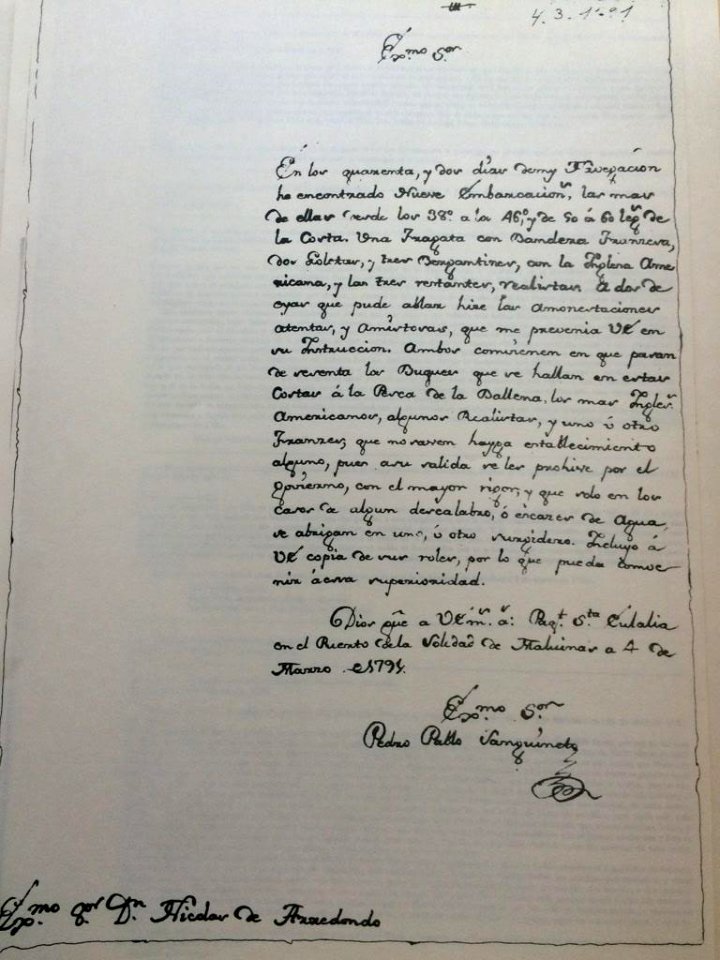 4. 3. 1791
Exmo Sor
En los quarenta, y dos dias demy Navegacion
he encontrado Nueve Embarcacions, las mas
de ellas desde los 38º a los 46º, y de 50 á 60 legs de
la Costa. Una Fragata con Bandera Franzesa,
dos Goletas, y tres Bergantines, con la Inglesa Ame
ricana, y las tres restantes, realistas. A dos de
eyas que pude ablar hize las amonestaciones
atentas, y amistosas, que me prevenia VE en
su Instruccion. Ambos combienen en que pasan
de sesenta los Buques que se hallan en estas
Costas á la Pesca de la Ballena, los mas Ingles
Americanos, algunos Realistas, y uno ú otro
Franzes, que no saven haya establecimiento
alguno, pues asu salida se les prohive por el
govierno, con el mayor rigor, y que solo en los
casos de algun descalabro, ó escases de Agua,
se abrigan en uno, ú otro surgidero. Incluyo á
VE copia de sus roles, por lo que pueda conve
nir áesa superioridad.
Dios gue a VE ms as: Paqt Sta Eulalia
en el Puerto dela Soledad de Maluinas a 4 de
Marzo de 1791.
Exmo Sor
Pedro Pablo Sanguineto
Exmo Sor Dn Nicolas de Arredondo